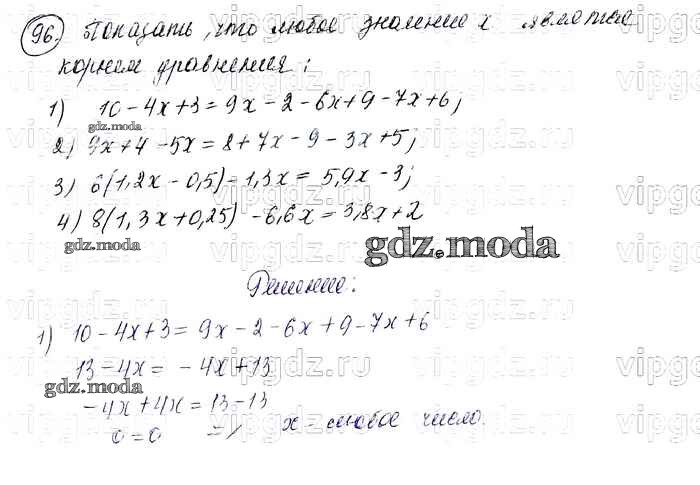 96. Показать, что любое значение x является
корнем уравнения:
1) 10 - 4x + 3 = 9x - 2 - 6x + 9 - 7x + 6;
gdz.moda
2) 9x + 4 - 5x = 8 + 7x - 9 - 3x + 5;
3) 6(1,2x - 0,5) - 1,3x = 5,9x - 3;
4) 8(1,3x + 0,25) - 6,6x = 3,8x + 2
gdz.moda
gdz.moda
Решение:
1) 10 - 4x + 3 = 9x - 2 - 6x + 9 - 7x + 6
13 - 4x = - 4x + 13
gdz.moda
- 4x + 4x = 13 - 13
0 = 0 => x - любое число.
vipgdz.ru